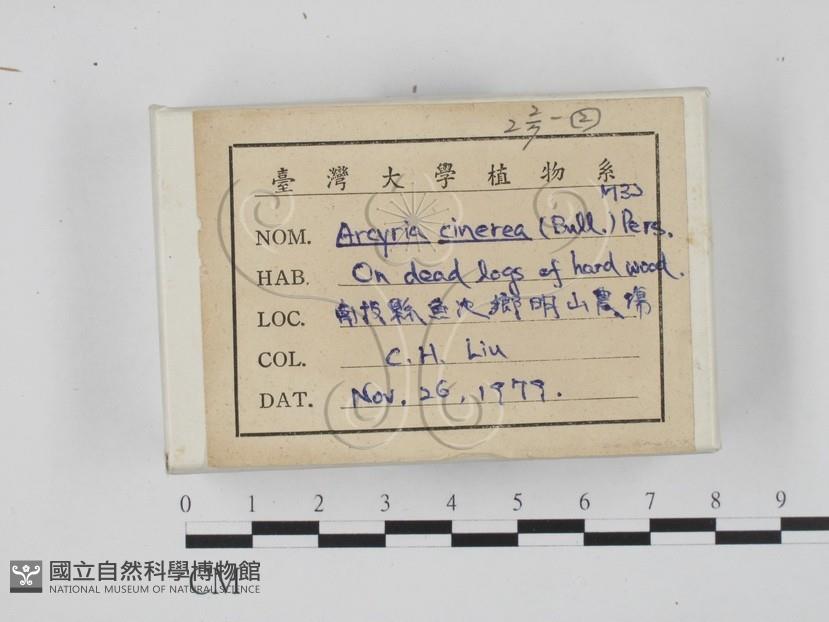 2 2/7 - ②
臺灣大學植物系
M33
NOM. Arcyria cinerea (Bull.) Pers.
HAB. On dead logs of hard wood.
LOC. 南投縣魚池鄉明山農場
COL. C.H. Liu
DAT. Nov. 26, 1979.
0 1 2 3 4 5 6 7 8 9
CM
國立自然科學博物館
NATIONAL MUSEUM OF NATURAL SCIENCE